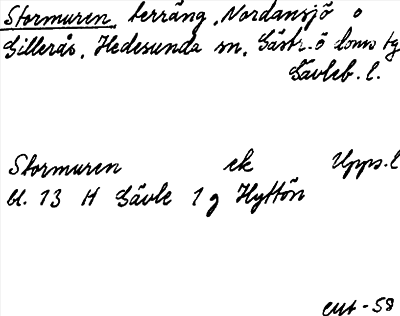 Stormuren, terräng, Nordansjö o
Gillerås, Hedesunda sn, Gästr. ö doms tg
Gävleb. l.
Stormuren ek Upps. l
bl. 13 H Gävle 1 g Hyttön
-58